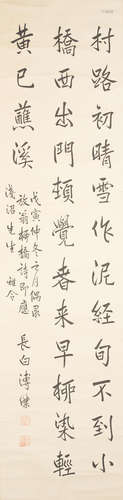 村路初晴雪作泥經旬不到小
橋西出門頓覺春来早柳染輕
黃已蘸溪
戊寅仲冬之月偶录
放翁柳橋詩即應
淩沼先生 雅令
長白溥傑